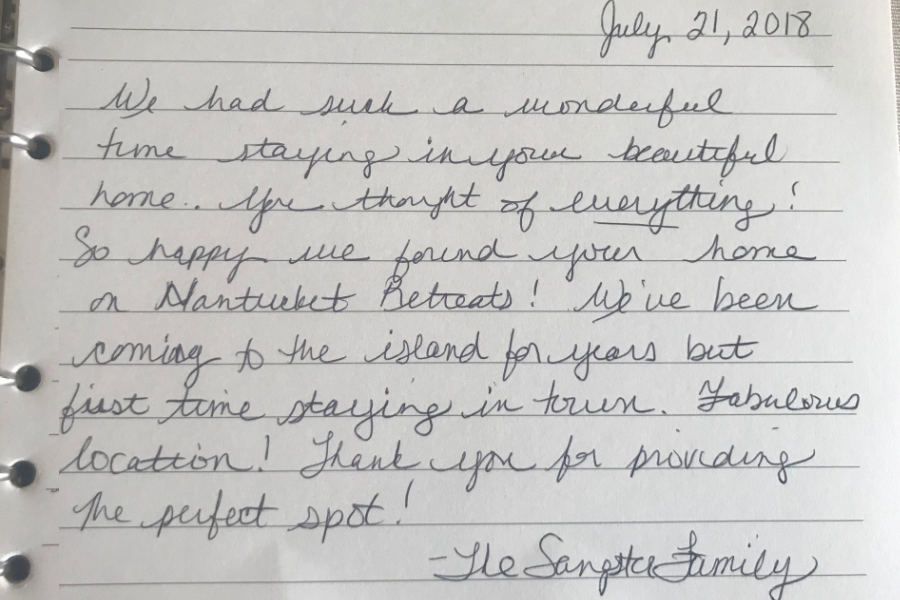 July 21, 2018
We had such a wonderful
time staying in your beautiful
home.. You thought of everything!
So happy we found your home
on Nantucket Retreats! We've been
coming to the island for years but
first time staying in town. Fabulous
location! Thank you for providing
the perfect spot!
- The Sangster Family